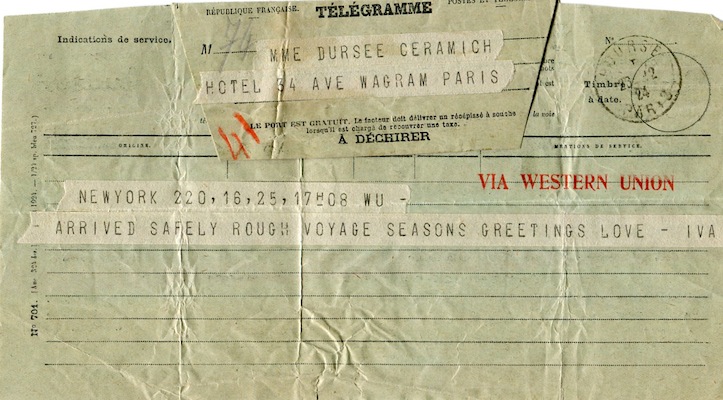 RÉPUBLIQUE FRANÇAISE.
POSTES ET
TÉLÉGRAMME
Indications de service.
M 74
N°
MME DURSEE CERAMICH
HOTEL 34 AVE WAGRAM PARIS
Timbre
à date.
LE PORT EST GRATUIT. Le facteur doit délivrer un récépissé à souche
lorsqu'il est chargé de recouvrer une taxe.
À DÉCHIRER
la voie
ORIGINE.
MENTIONS DE SERVICE.
VIA WESTERN UNION
NEWYORK 220,16,25,17H08 WU -
ARRIVED SAFELY ROUGH VOYAGE SEASONS GREETINGS LOVE - IVA
N° 701.